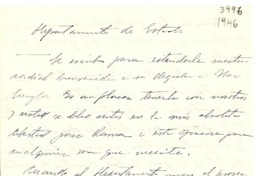 3996
1946
Departamento de Estado
Le escribo para extenderle nuestra
cordial bienvenida a su llegada a Wash
ington. Es un placer tenerla con nosotros
y usted debe sentirse en la más absoluta
libertad para llamar a esta oficina para
cualquier cosa que necesite.
Cuando el Departamento